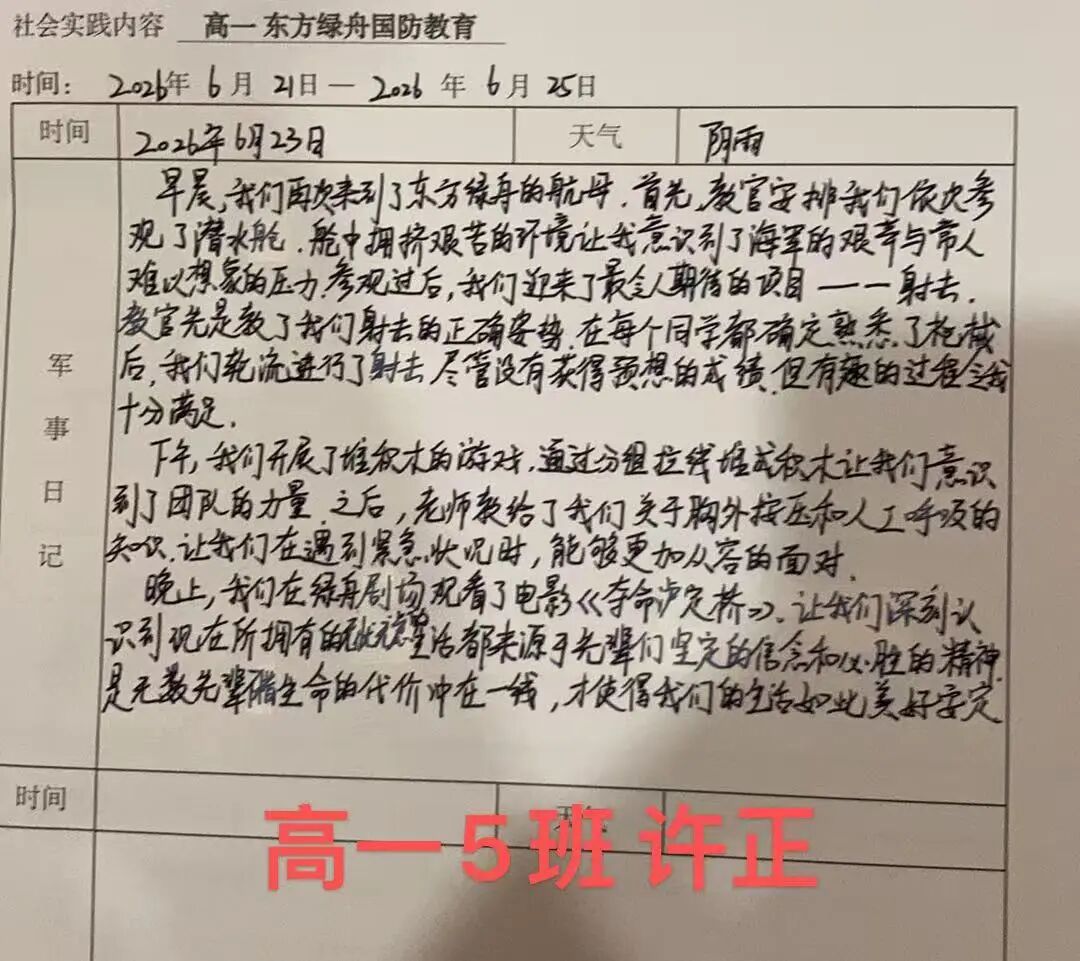 社会实践内容 高一 东方绿舟国防教育
时间： 2026年 6月 21日 — 2026 年 6月 25日
时间 2026年6月23日 天气 阴雨
军事日记
早晨，我们再次来到了东方绿舟的航母．首先，教官安排我们依次参
观了潜水舱．舱中拥挤艰苦的环境让我意识到了海军的艰辛与常人
难以想象的压力．参观过后，我们迎来了最令人期待的项目——射击．
教官先是教了我们射击的正确姿势．在每个同学都确定熟悉了枪械
后，我们轮流进行了射击．尽管没有获得预想的成绩．但有趣的过程令我
十分满足．
下午，我们开展了堆积木的游戏．通过分组拉线堆成积木让我们意识
到了团队的力量．之后，老师教给了我们关于胸外按压和人工呼吸的
知识．让我们在遇到紧急状况时，能够更加从容的面对．
晚上，我们在绿舟剧场观看了电影《夺命泸定桥》．让我们深刻认
识到现在所拥有的生活都来源于先辈们坚定的信念和必胜的精神．
是无数先辈生命的代价冲在一线，才使得我们的生活如此美好安定
时间 天气
高一5班 许正